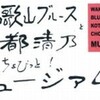 歌山ブルースと
都清乃
ちょびっと!
ミュージアム
WA
BLU
NOT
CHO
MU